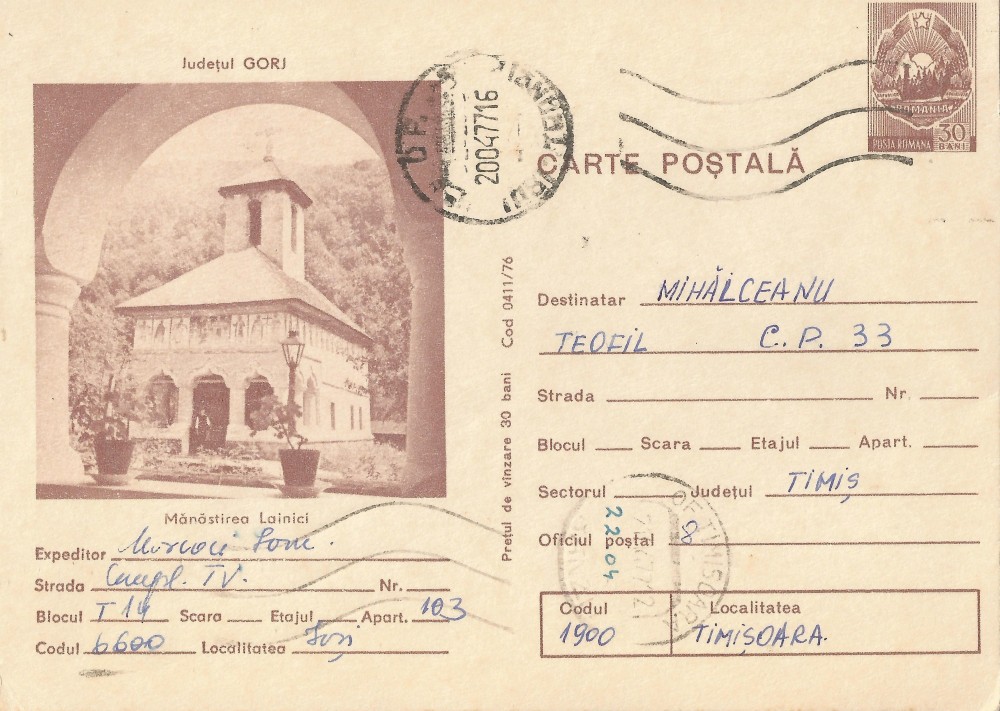 Județul GORJ
ROMANIA
POSTA ROMANA
30
BANI
200477 16
CARTE POȘTALĂ
Destinatar MIHĂLCEANU
TEOFIL C.P. 33
Strada Nr.
Blocul Scara Etajul Apart.
Sectorul Județul TIMIȘ
Oficiul poștal 8
OF. TIMISOARA
22 04
Codul Localitatea
1900 TIMIȘOARA.
Prețul de vînzare 30 bani Cod 0411/76
Mănăstirea Lainici
Expeditor
Strada Compl. TV. Nr.
Blocul T 14 Scara Etajul Apart. 103
Codul 6600 Localitatea Iași